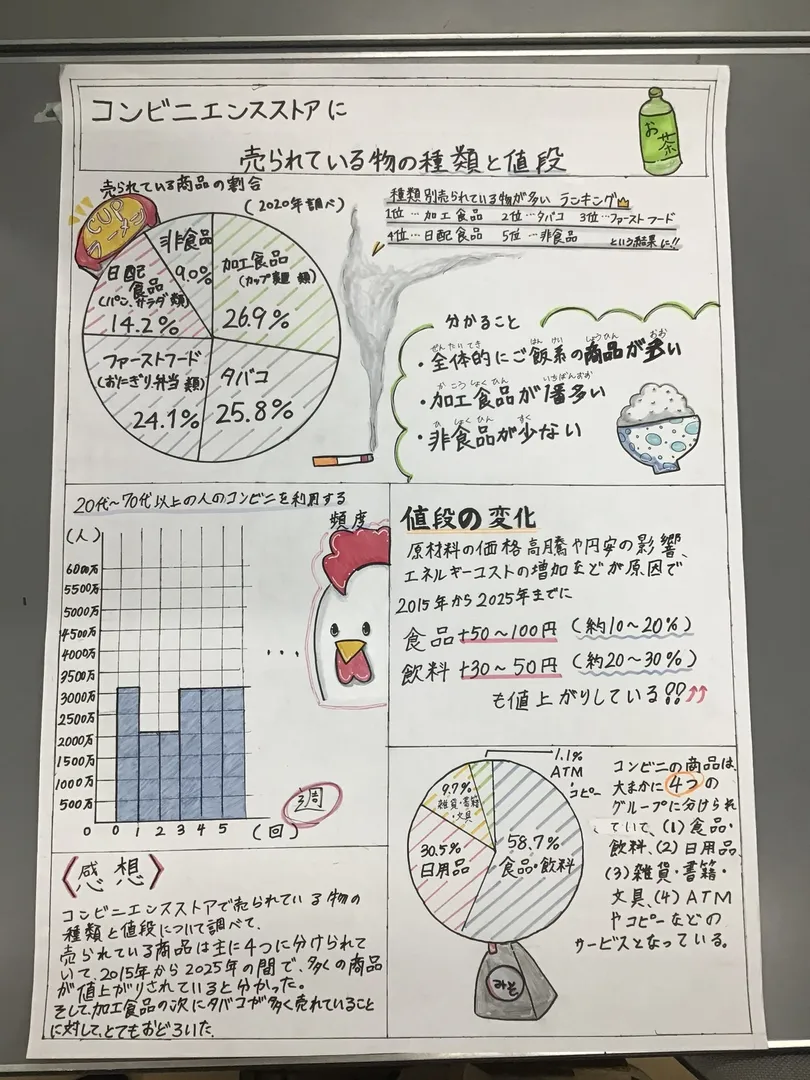 コンビニエンスストアに
売られている物の種類と値段
お茶
売られている商品の割合
(2020年調べ)
CUP
ラーメン
非食品
9.0%
加工食品
(カップ麺 類)
26.9%
日配
食品
(パン、サラダ類)
14.2%
ファーストフード
(おにぎり、弁当 類)
24.1%
タバコ
25.8%
種類別売られている物が多い ランキング
1位…加工食品 2位…タバコ 3位…ファーストフード
4位…日配食品 5位…非食品 という結果に!!
分かること
・全体的にご飯系の商品が多い
ぜんたいてき はんけい しょうひん おお
・加工食品が1番多い
かこうしょくひん いちばんおお
・非食品が少ない
ひしょくひん すく
20代~70代以上の人のコンビニを利用する
頻度
(人)
6000万
5500万
5000万
4500万
4000万
3500万
3000万
2500万
2000万
1500万
1000万
500万
0 0 1 2 3 4 5 (回)
...
3周
値段の変化
原材料の価格高騰や円安の影響、
エネルギーコストの増加などが原因で
2015年から2025年までに
食品+50~100円 (約10~20%)
飲料+30~50円 (約20~30%)
も値上がりしている!?
1.1%
ATM
・コピー
9.7%
雑貨・書籍
・文具
30.5%
日用品
58.7%
食品・飲料
みそ
コンビニの商品は、
大まかに4つの
グループに分けられ
ていて、(1)食品・
飲料、(2)日用品、
(3)雑貨・書籍・
文具、(4)ATM
やコピーなどの
サービスとなっている。
〈感想〉
コンビニエンスストアで売られている物の
種類と値段について調べて、
売られている商品は主に4つに分けられて
いて、2015年から2025年の間で、多くの商品
が値上がりされていると分かった。
そして、加工食品の次にタバコが多く売れていること
に対して、とてもおどろいた。